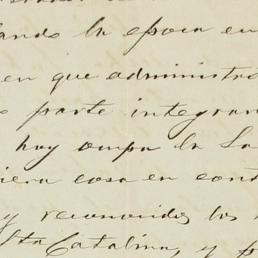 ando la epoca en
en que administra
parte integran
hoy ocupa la Sa
iera cosa en cont
y reconocidos los
Sta Catalina, y p